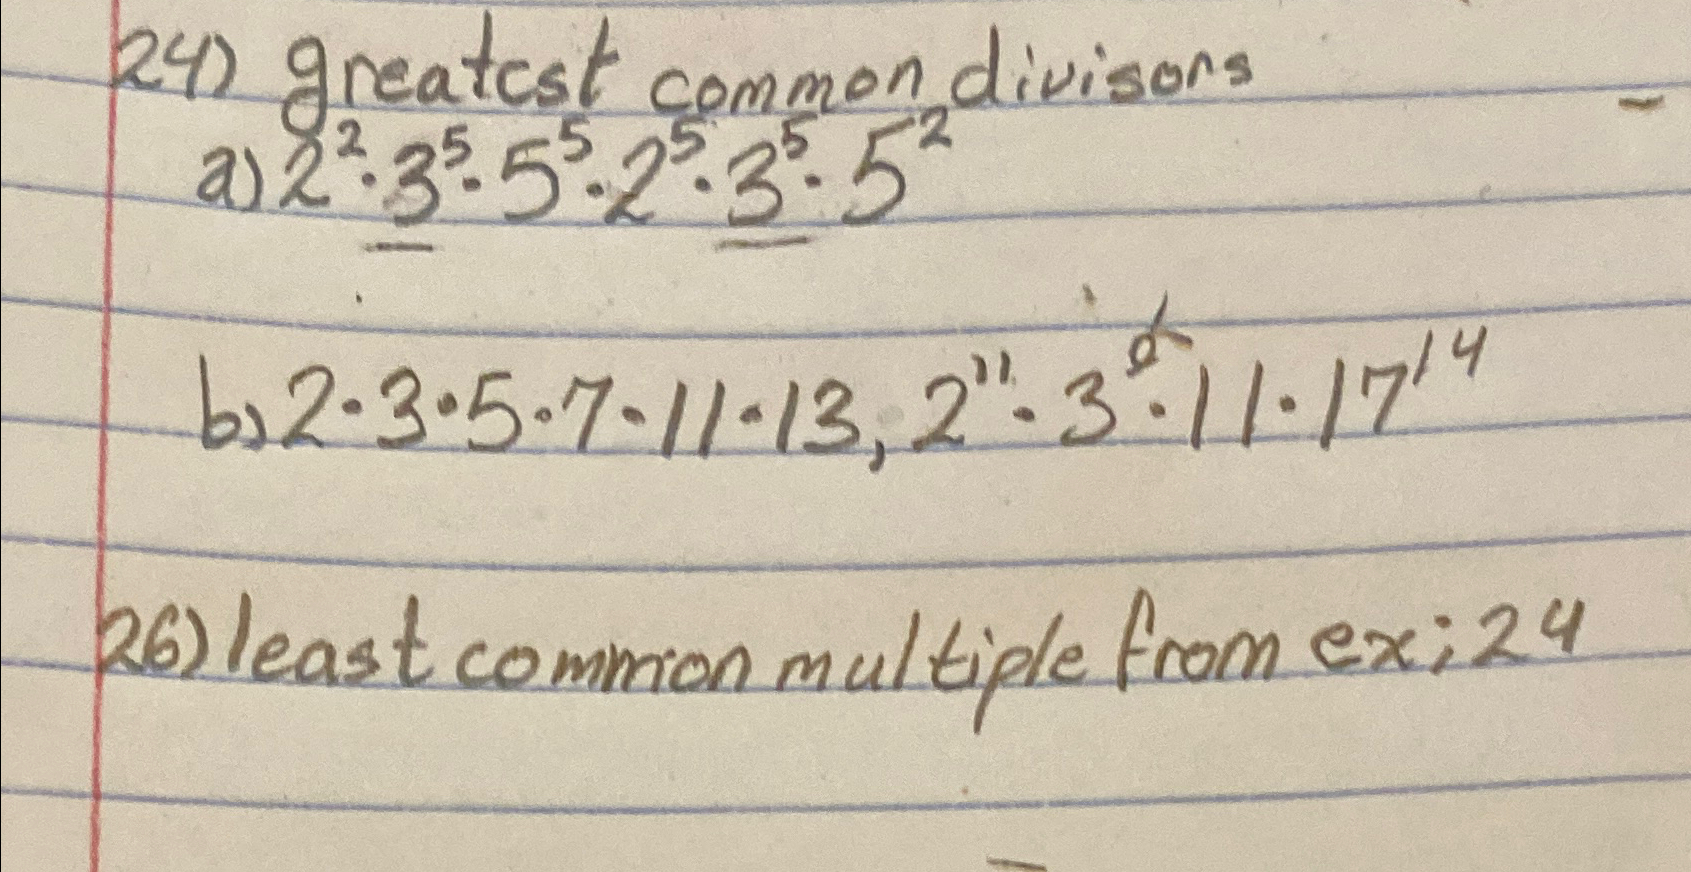 24) greatest common divisors
a) 2².3⁵.5⁵.2⁵.3⁵.5²
b) 2.3.5.7.11.13, 2¹¹.3.11.17¹⁴
26) least common multiple from ex; 24